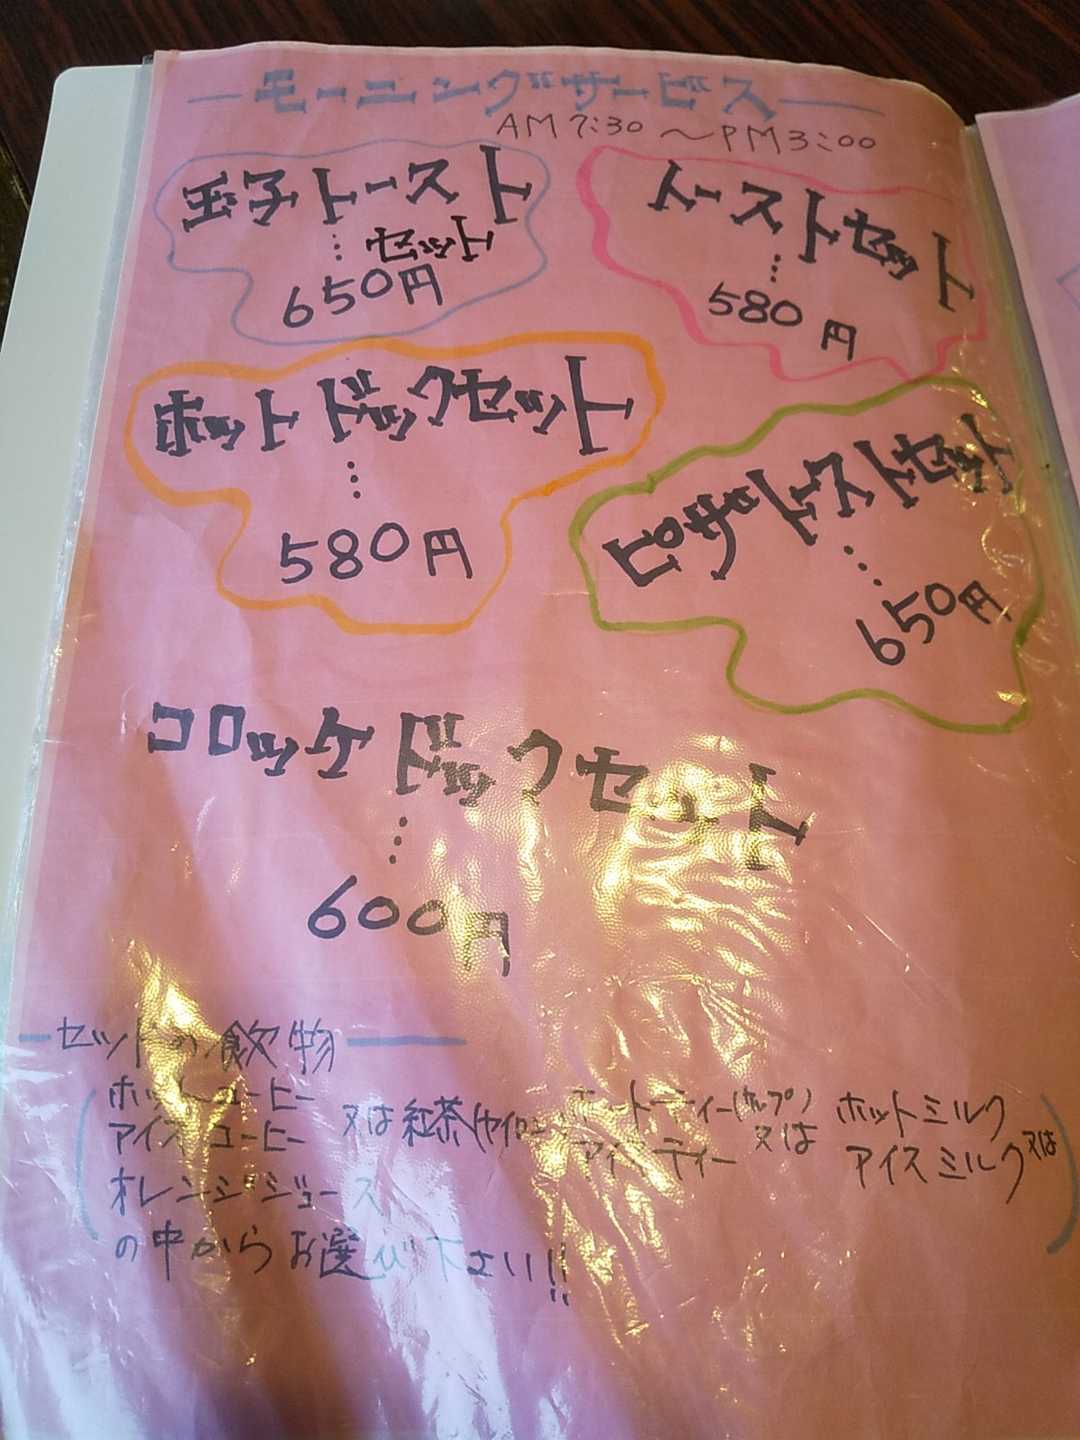 モーニングサービス
AM7:30〜PM3:00
玉子トースト
セット
650円
トーストセット
580円
ホットドックセット
580円
ピザトーストセット
650円
コロッケドックセット
600円
セットの飲物
ホットコーヒー
アイスコーヒー
又は紅茶(セイロン)
ホットティー(カップ)
アイスティー
又は
ホットミルク
アイスミルク又は
オレンジジュース
の中からお選び下さい!!